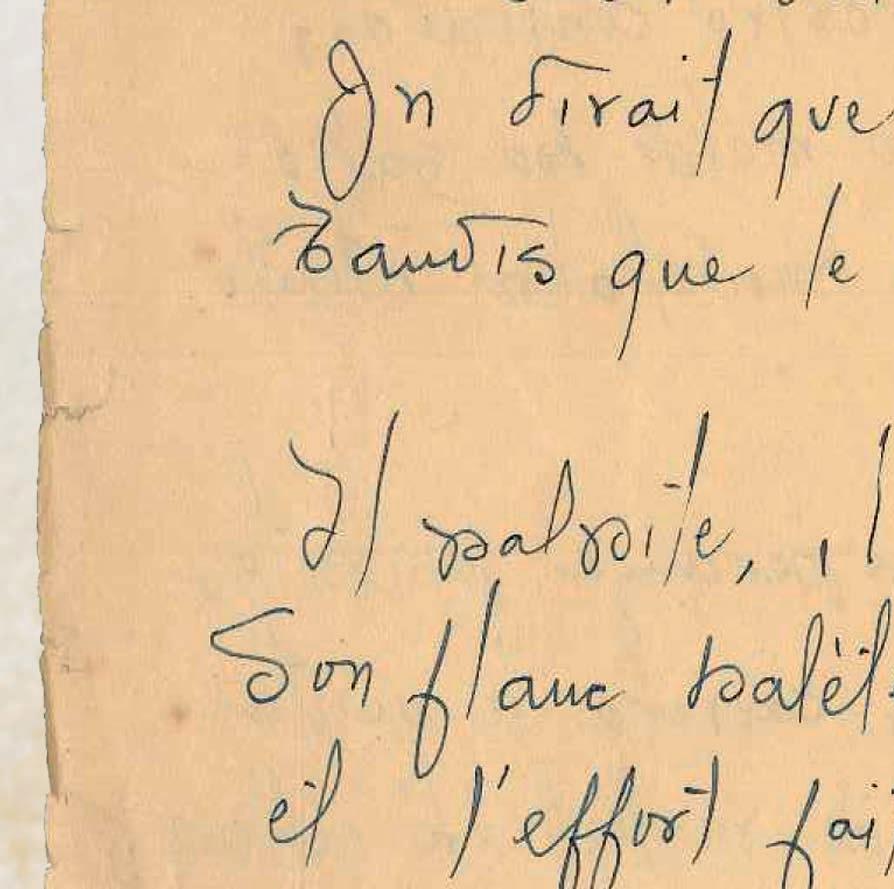 On dirait que
Tandis que le
Il palpite, i l
Son flanc halèt
et l'effort fait